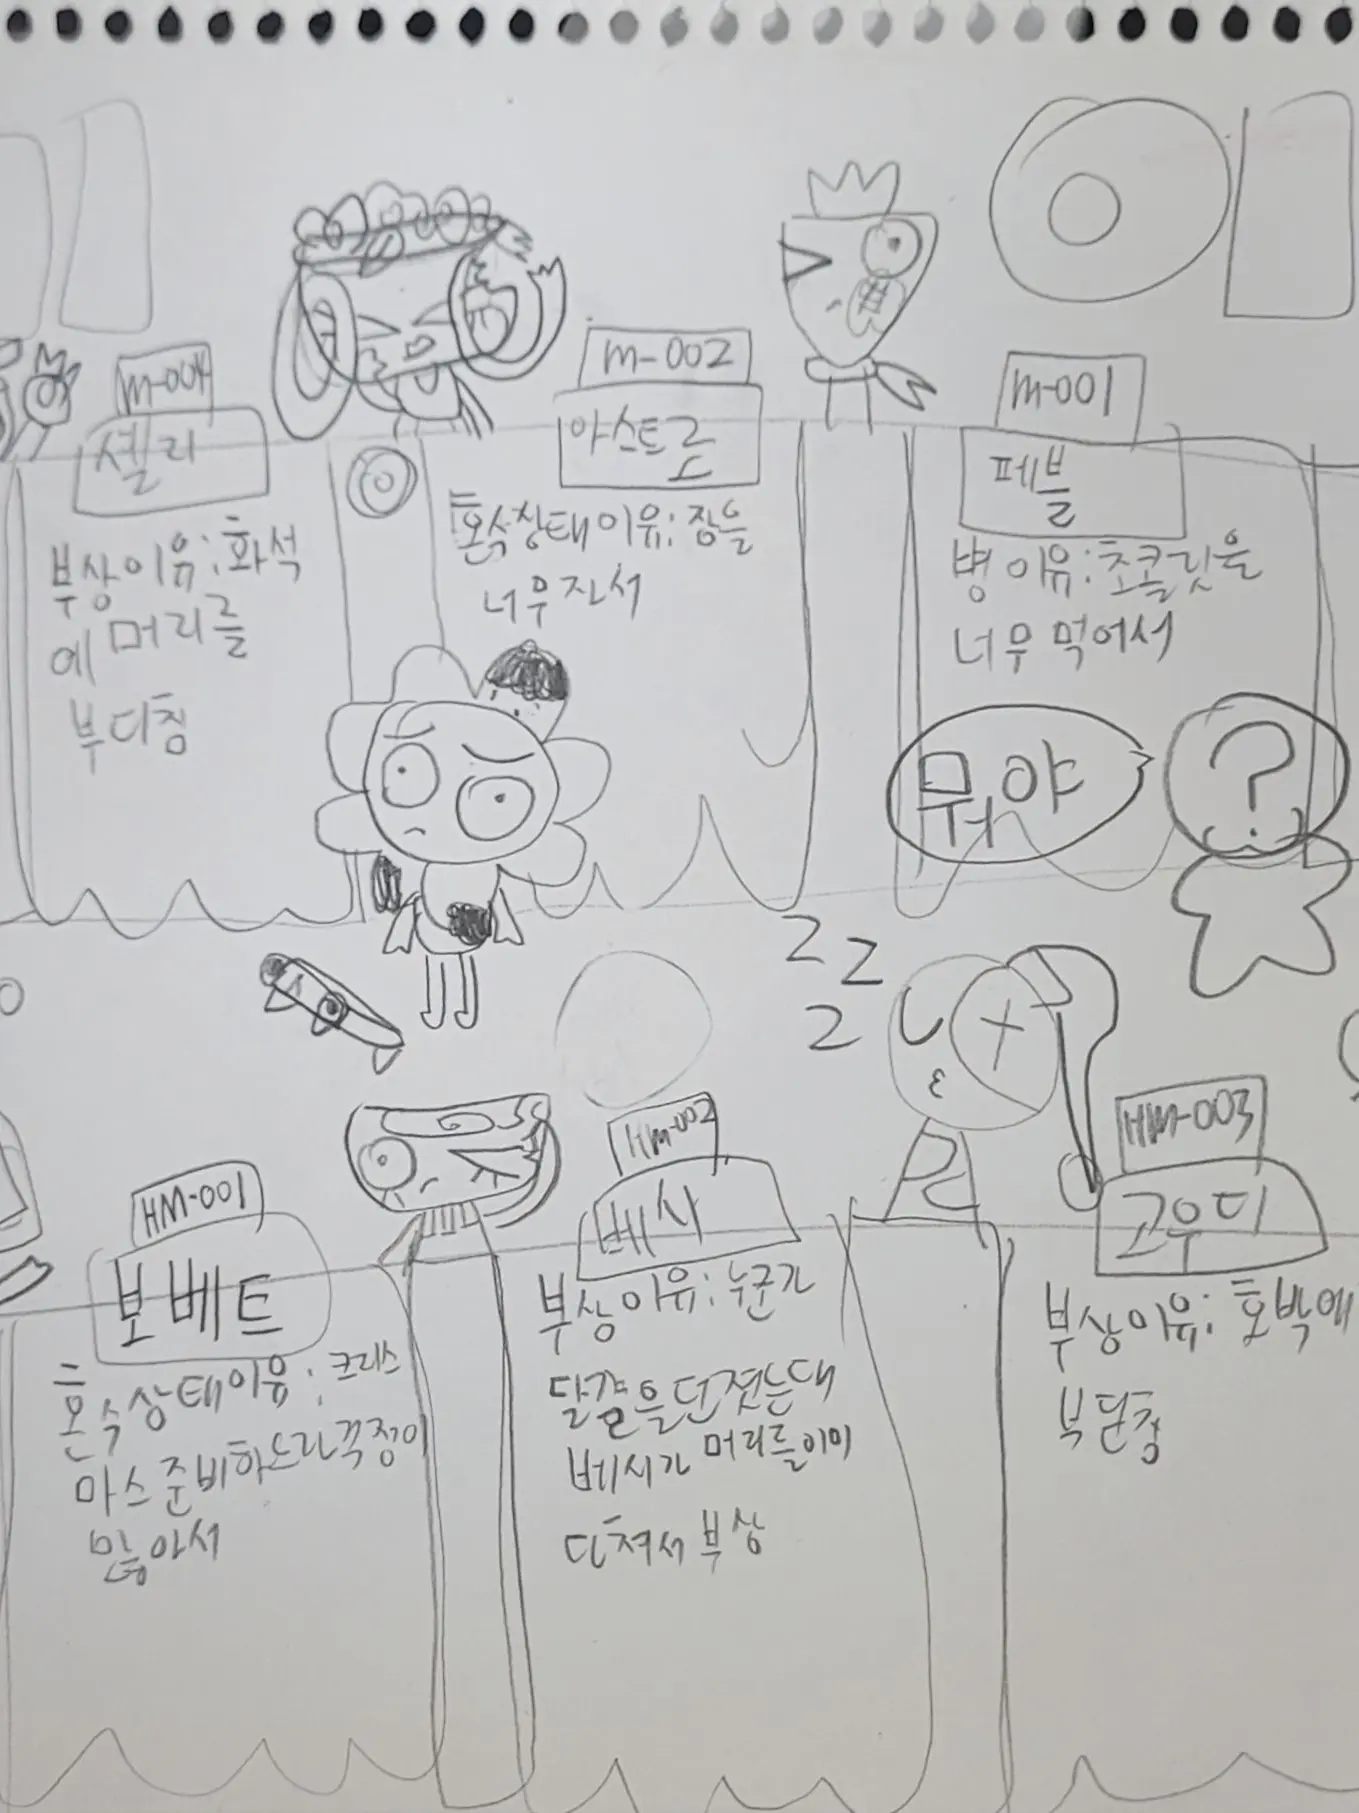 M-004
셸리
부상이유:화석
에 머리를
부디침
M-002
아스트로
혼수창태이유:잠을
너무자서
M-001
페블
병이유:초콜릿을
너무먹어서
뭐야
?
Z
Z
Z
HM-001
보베트
혼수상태이유:크리스
마스준비하느라꼭정이
많아서
HM-002
베시
부상이유:누군가
달걀을던졌는대
베시가 머리를이미
다쳐서부상
HM-003
코우디
부상이유:호박에
부딛침